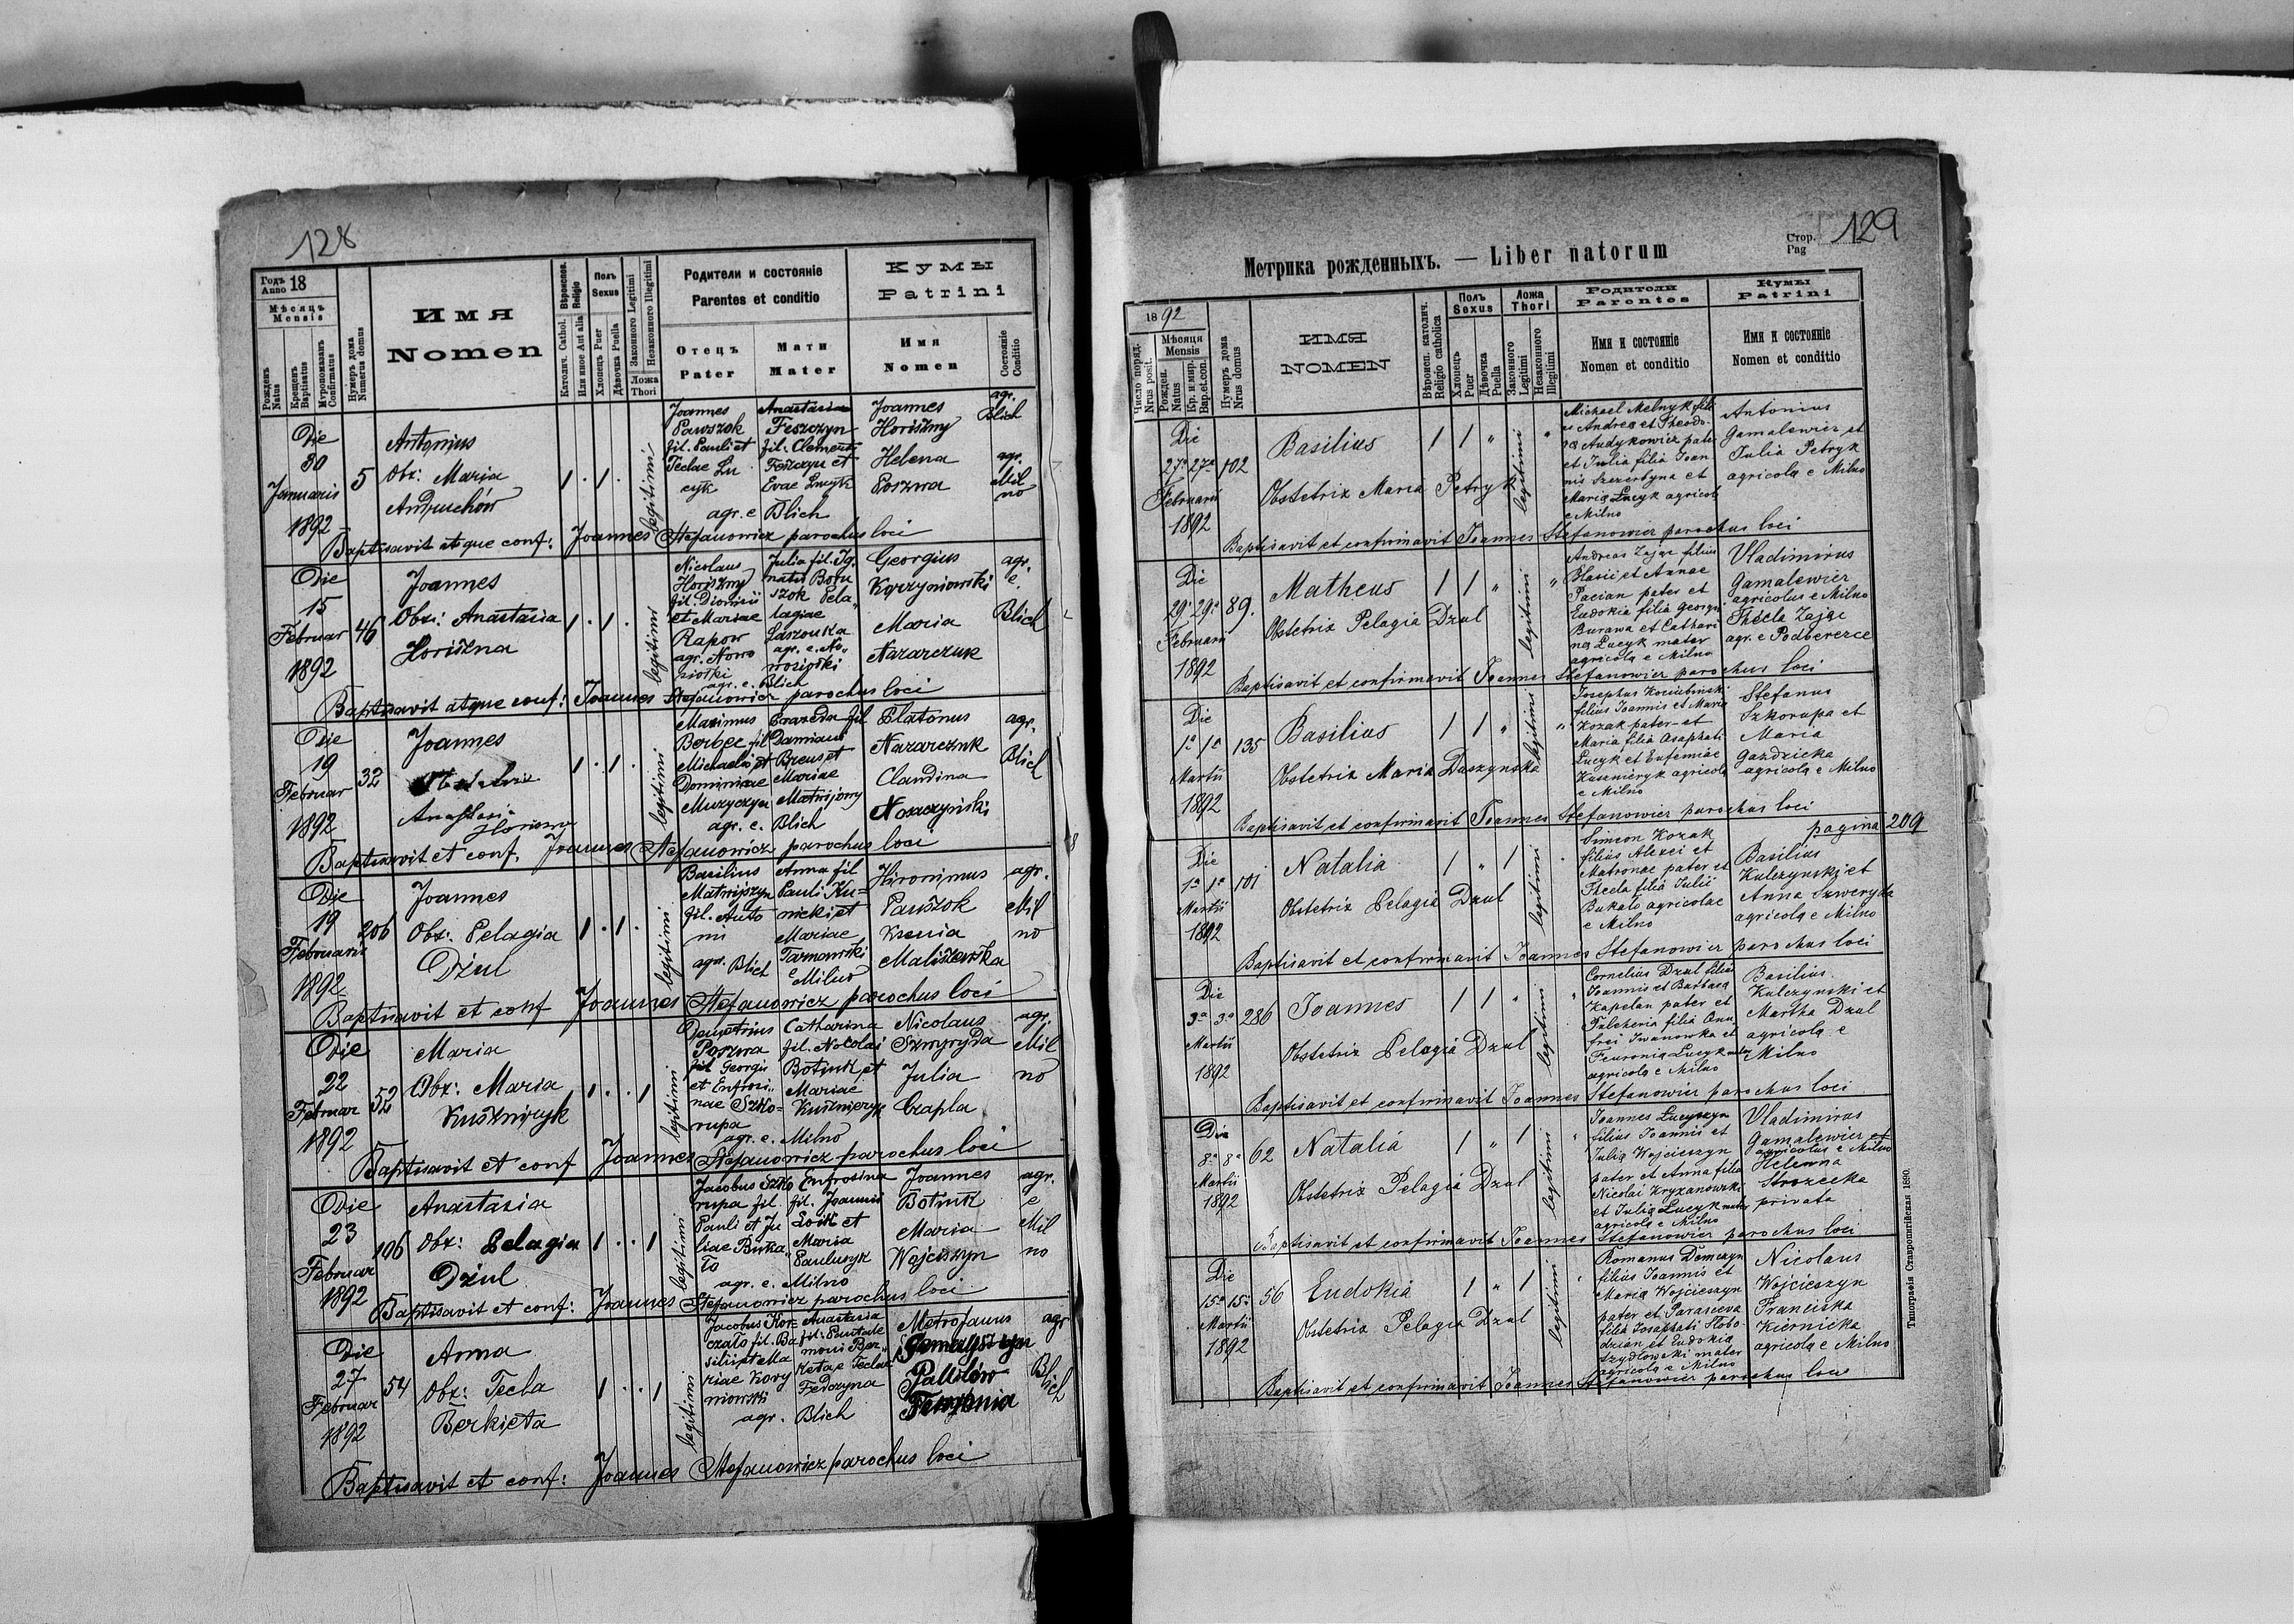 128
Годъ 18
Anno
Мѣсяцъ
Mensis
Рожденъ
Natus
Крещенъ
Baptisatus
Муропомазанъ
Confirmatus
Нумеръ дома
Numerus domus
Имя
Nomen
Вѣроиспов.
Religio
Католич. Cathol.
Или иное Aut alia
Полъ
Sexus
Хлопецъ Puer
Дѣвочка Puella
Законного Legitimi
Незаконного Illegitimi
Ложа
Thori
Родители и состояніе
Parentes et conditio
Отецъ
Pater
Мати
Mater
Кумы
Patrini
Имя
Nomen
Состояніе
Conditio
Die
30
Januaris
1892
5
Antonius
Obz: Maria
Andruchów
1 . 1 .
legitimi
Joannes
Pawszok
fil. Pauli et
Teclae Lu
cyk
Anastasia
Feszczyn
fil. Clementi
Feszczyn et
Evae Lucyk
agr. e Blich
Joannes
Horiszny
Helena
Poszwa
agr.
Blich
agr.
Mil
no
Baptisavit atque conf: Joannes Stefanowicz parochus loci
Die
15
Februar
1892
46
Joannes
Obz: Anastasia
Horiszna
1 . 1 .
legitimi
Nicolaus
Horiszny
fil. Dionisii
et Mariae
Rapow
agr. Nowo
siolki
Julia fil. Ig.
natii Botu
szok Pela
lagiae
Laszouka
agr. e. No
wosiolki
agr. e. Blich
Georgius
Korzyniowski
Maria
Nazarczuk
agr.
e
Blich
Baptisavit atque conf: Joannes Stefanowicz parochus loci
Die
19
Februar
1892
32
Joannes
Anastasia
Horiszna
1 . 1 .
legitimi
Maximus
Berbec fil
Michaeli et
Dominicae
Muzyczyn
Paraceda fil
Damiani
Breus et
Mariae
Matwijowy
agr. e. Blich
Platonus
Nazarczuk
Claudina
Noszczyński
agr.
Blich
Baptisavit et conf. Joannes Stefanowicz parochus loci
Die
19
Februaris
1892
206
Joannes
Obz: Pelagia
Dziul
1 . 1 .
legitimi
Basilius
Matwijszyn
fil. Anto
ni
agr. Blich
Anna fil
Pauli Ku=
nicki et
Mariae
Tarnowski
e Milno
Hironimus
Pawszok
Ksenia
Maliszewska
agr.
Mil
no
Baptisavit et conf Joannes Stefanowicz parochus loci
Die
22
Februar
1892
52
Maria
Obz: Maria
Kusznieryk
1 . . 1
legitimi
Demetrius
Poszwa
fil Georgii
et Enfrosi
nae Szko=
rupa
Catharina
fil. Nicolai
Botiuk et
Mariae
Kusznieryk
agr. e. Milno
Nicolaus
Szmyryda
Julia
Czapla
agr.
Mil
no
Baptisavit et conf Joannes Stefanowicz parochus loci
Die
23
Februar
1892
106
Anastasia
Obz: Pelagia
Dziul
1 . . 1
legitimi
Jacobus Szko
rupa fil.
Pauli et Ju
liae Buka
To
Enfrosina
fil. Joannis
Loik et
Maria
Pauluszyk
agr. e. Milno
Joannes
Botiuk
Maria
Wojciszyn
agr.
e
Mil
no
Baptisavit et conf: Joannes Stefanowicz parochus loci
Die
27
Februar
1892
54
Anna
Obz: Tecla
Berkieta
1 . . 1
legitimi
Jacobus Kor=
czało fil. Ba
silii et Ma
riae Kory
niowski
Anastasia
fil. Pantale
moni Ber
kieta e Teclae
Fedczyna
agr. Blich
Metrofanus
agr
Blich
Baptisavit et conf: Joannes Stefanowicz parochus loci
Стор.
Pag
129
Метрика рожденныхъ. — Liber natorum
1892
Число поряд.
Nrus posit.
Мѣсяця
Mensis
Рожден.
Natus
Кр. и мир.
Bap. et con.
Нумеръ дома
Nrus domus
ИМЯ
NOMEN
Вѣроисп. католич.
Religio catholica
Полъ
Sexus
Хлопецъ
Puer
Дѣвочка
Puella
Ложа
Thori
Законного
Legitimi
Незаконного
Illegitimi
Родители
Parentes
Имя и состояніе
Nomen et conditio
Кумы
Patrini
Имя и состояніе
Nomen et conditio
Die
27a 27a
Februarii
1892
102
Basilius
1 1 "
Obstetrix Maria Petryk
legitimi
Michael Melnyk fili
us Andrea et Theodo
ra Andykowicz pater
et Julia filia Joan
nis Szezertyna et
Maria Lucyk agricol
e Milno
Antonius
Gamalewicz et
Julia Petryk
agricola e Milno
Baptisavit et confirmavit Joannes Stefanowicz parochus loci
Die
29a 29a
Februarii
1892
89.
Matheus
1 1 "
Obstetrix Pelagia Dzul
legitimi
Andreas Zając filius
Blasii et Annae
Pacian pater et
Eudokia filia Georgii
Burawa et Cathari
na Lucyk mater
agricola e Milno
Vladimirus
Gamalewicz
agricolus e Milno
Thecla Zając
agr. e Podberezce
Baptisavit et confirmavit Joannes Stefanowicz parochus loci
Die
1a 1a
Martii
1892
135
Basilius
1 1 "
Obstetrix Maria Daszynska
legitimi
Josephus Kociubinski
filius Joannis et Maria
Kozak pater et
Maria filia Asaphati
Lucyk et Eufemiae
Kusznieryk agricola
e Milno
Stefanus
Szkorupa et
Maria
Gazdzicka
agricola e Milno
Baptisavit et confirmavit Joannes Stefanowicz parochus loci
pagina 209
Die
1a 1a
Martii
1892
101
Natalia
1 " 1
Obstetrix Pelagia Dzul
legitimi
Simeon Kozak
filius Alexei et
Matronae pater et
Thecla filia Julii
Bukalo agricolae
e Milno
Basilius
Kulczynski et
Anna Szweryda
agricola e Milno
Baptisavit et confirmavit Joannes Stefanowicz parochus loci
Die
3a 3a
Martii
1892
286
Joannes
1 1 "
Obstetrix Pelagia Dzul
legitimi
Cornelius Dzul filius
Joannis et Barbara
Kapelan pater et
Pulcheria filia Onu
frei Iwanowka et
Feuronia Lucyk mater
agricola e Milno
Basilius
Kulczynski et
Martha Dzul
agricola e
Milno
Baptisavit et confirmavit Joannes Stefanowicz parochus loci
Die
8a 8a
Martii
1892
62
Natalia
1 " 1
Obstetrix Pelagia Dzul
legitimi
Joannes Lucyszyn
filius Joannis et
Julia Wojcieszyn
pater et Anna filia
Nicolai Kryzanowski
et Julia Lucyk mater
agricola e Milno
Vladimirus
Gamalewicz et
agricolus e Milno
Helenna
Strozecka
privata
Baptisavit et confirmavit Joannes Stefanowicz parochus loci
Die
15a 15a
Martii
1892
56
Eudokia
1 " 1
Obstetrix Pelagia Dzul
legitimi
Romanus Demczyn
filius Joannis et
Maria Wojcieszyn
pater et Parasceva
filia Josaphati Slobo
dzian et Eudokia
Szydlowski mater
agricola e Milno
Nicolaus
Wojcieszyn
Franciska
Kiernicka
agricola e Milno
Baptisavit et confirmavit Joannes Stefanowicz parochus loci
Типографія Ставропигійская 1890.